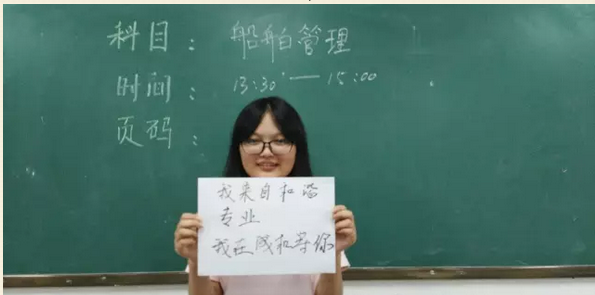 科目：船舶管理
时间：13:30—15:00
页码：
我来自和谐
专业
我在成和等你